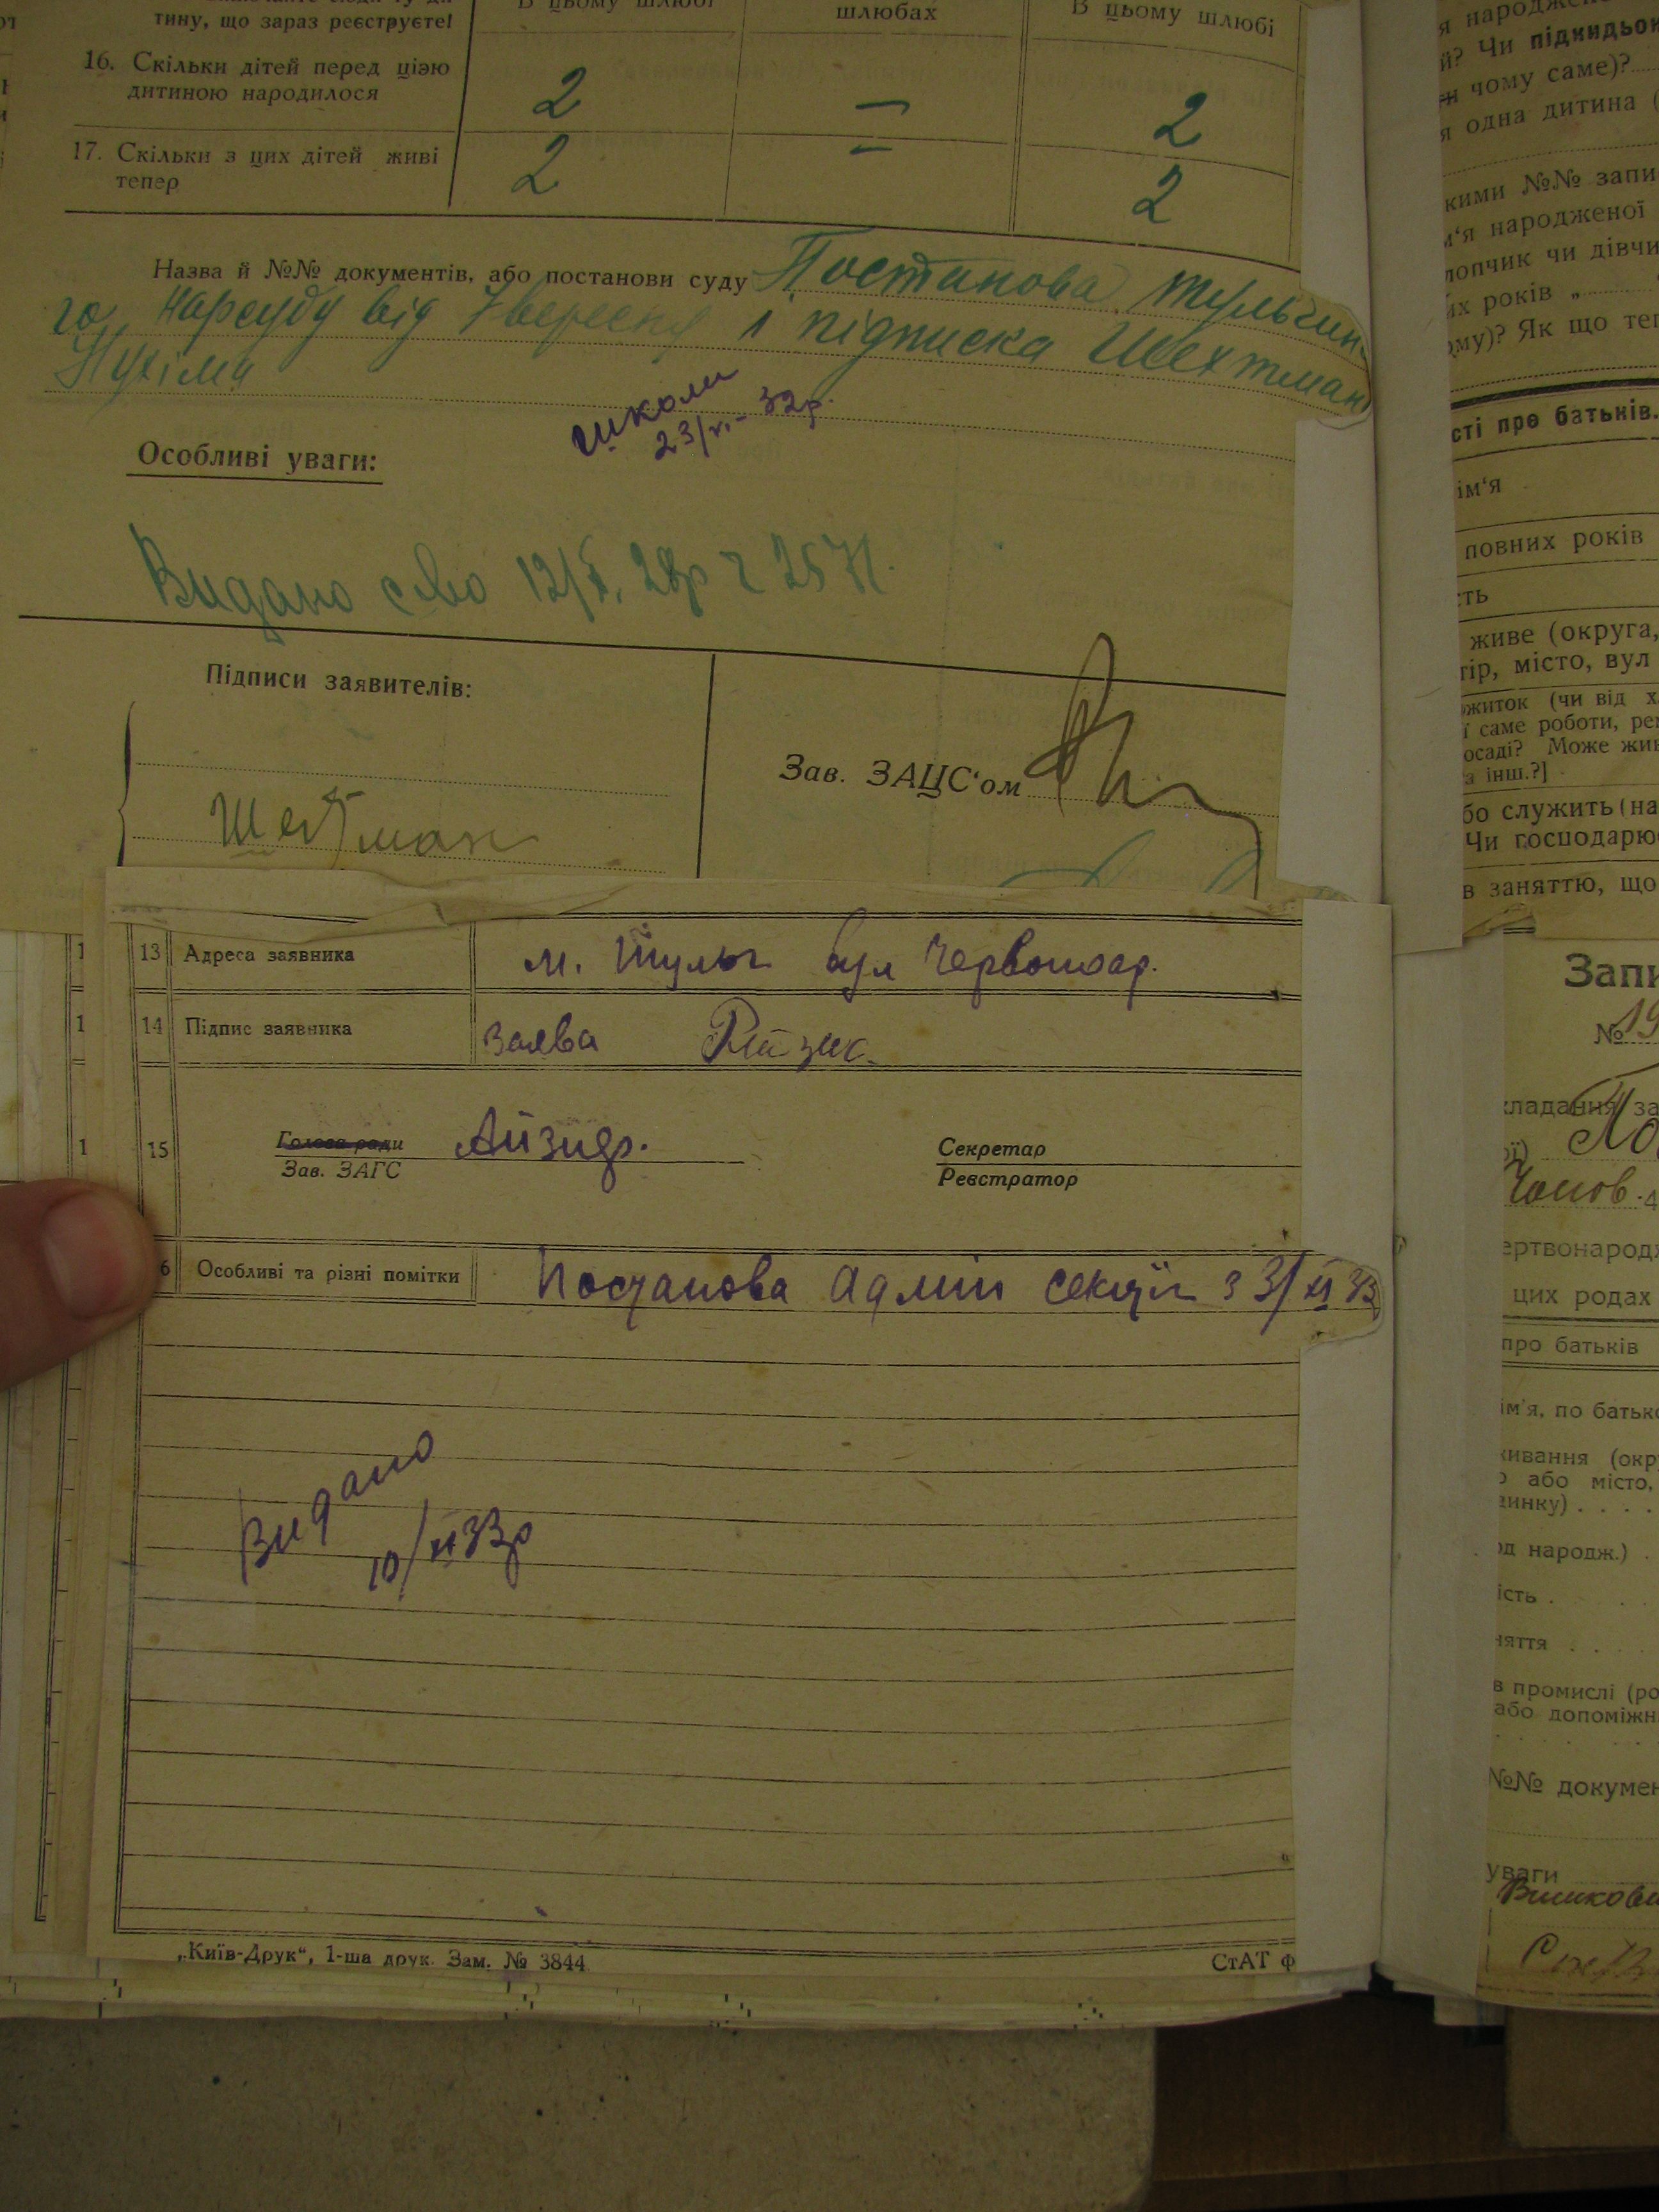 тину, що зараз реєструєте!
В цьому шлюбі
шлюбах
В цьому шлюбі
16. Скільки дітей перед цією
дитиною народилося
2
—
2
17. Скільки з цих дітей живі
тепер
2
—
2
Назва й №№ документів, або постанови суду Постанова Тульчин-
го, Нарсуду від 7 вересня і підписка Шехтман
Нухіма
школи
32р.
Особливі уваги:
Видано 28р
Підписи заявителів:
Зав. ЗАЦС'ом
Шехтман
13 Адреса заявника
м. Тульч вул Червоноар.
14 Підпис заявника
Заява
15
Голова ради
Зав. ЗАГС
Секретар
Реєстратор
6 Особливі та різні помітки
Постанова Адмін секції з 3/XI 33
Видано
10/XI 33р
„Київ-Друк“, 1-ша друк. Зам. № 3844
СтАТ Ф
й? Чи підкидьок
чому саме)?
я одна дитина (
кими №№ запи
м‘я народженої
лопчик чи дівчи
их років „
ому)? Як що теп
сті про батьків.
ім‘я
повних років
сть
живе (округа,
тір, місто, вул
ожиток (чи від х
ї саме роботи, рем
осаді? Може жив
з інш.?]
бо служить (на
Чи господарює
в заняттю, що
Запи
№ 19
кладання за
ертвонародж
цих родах
про батьків
ім'я, по батько
живання (окр
о або місто,
винку) . . . .
од народж.) .
ість .
няття . . .
в промислі (ро
або допоміжн
№№ докумен
уваги